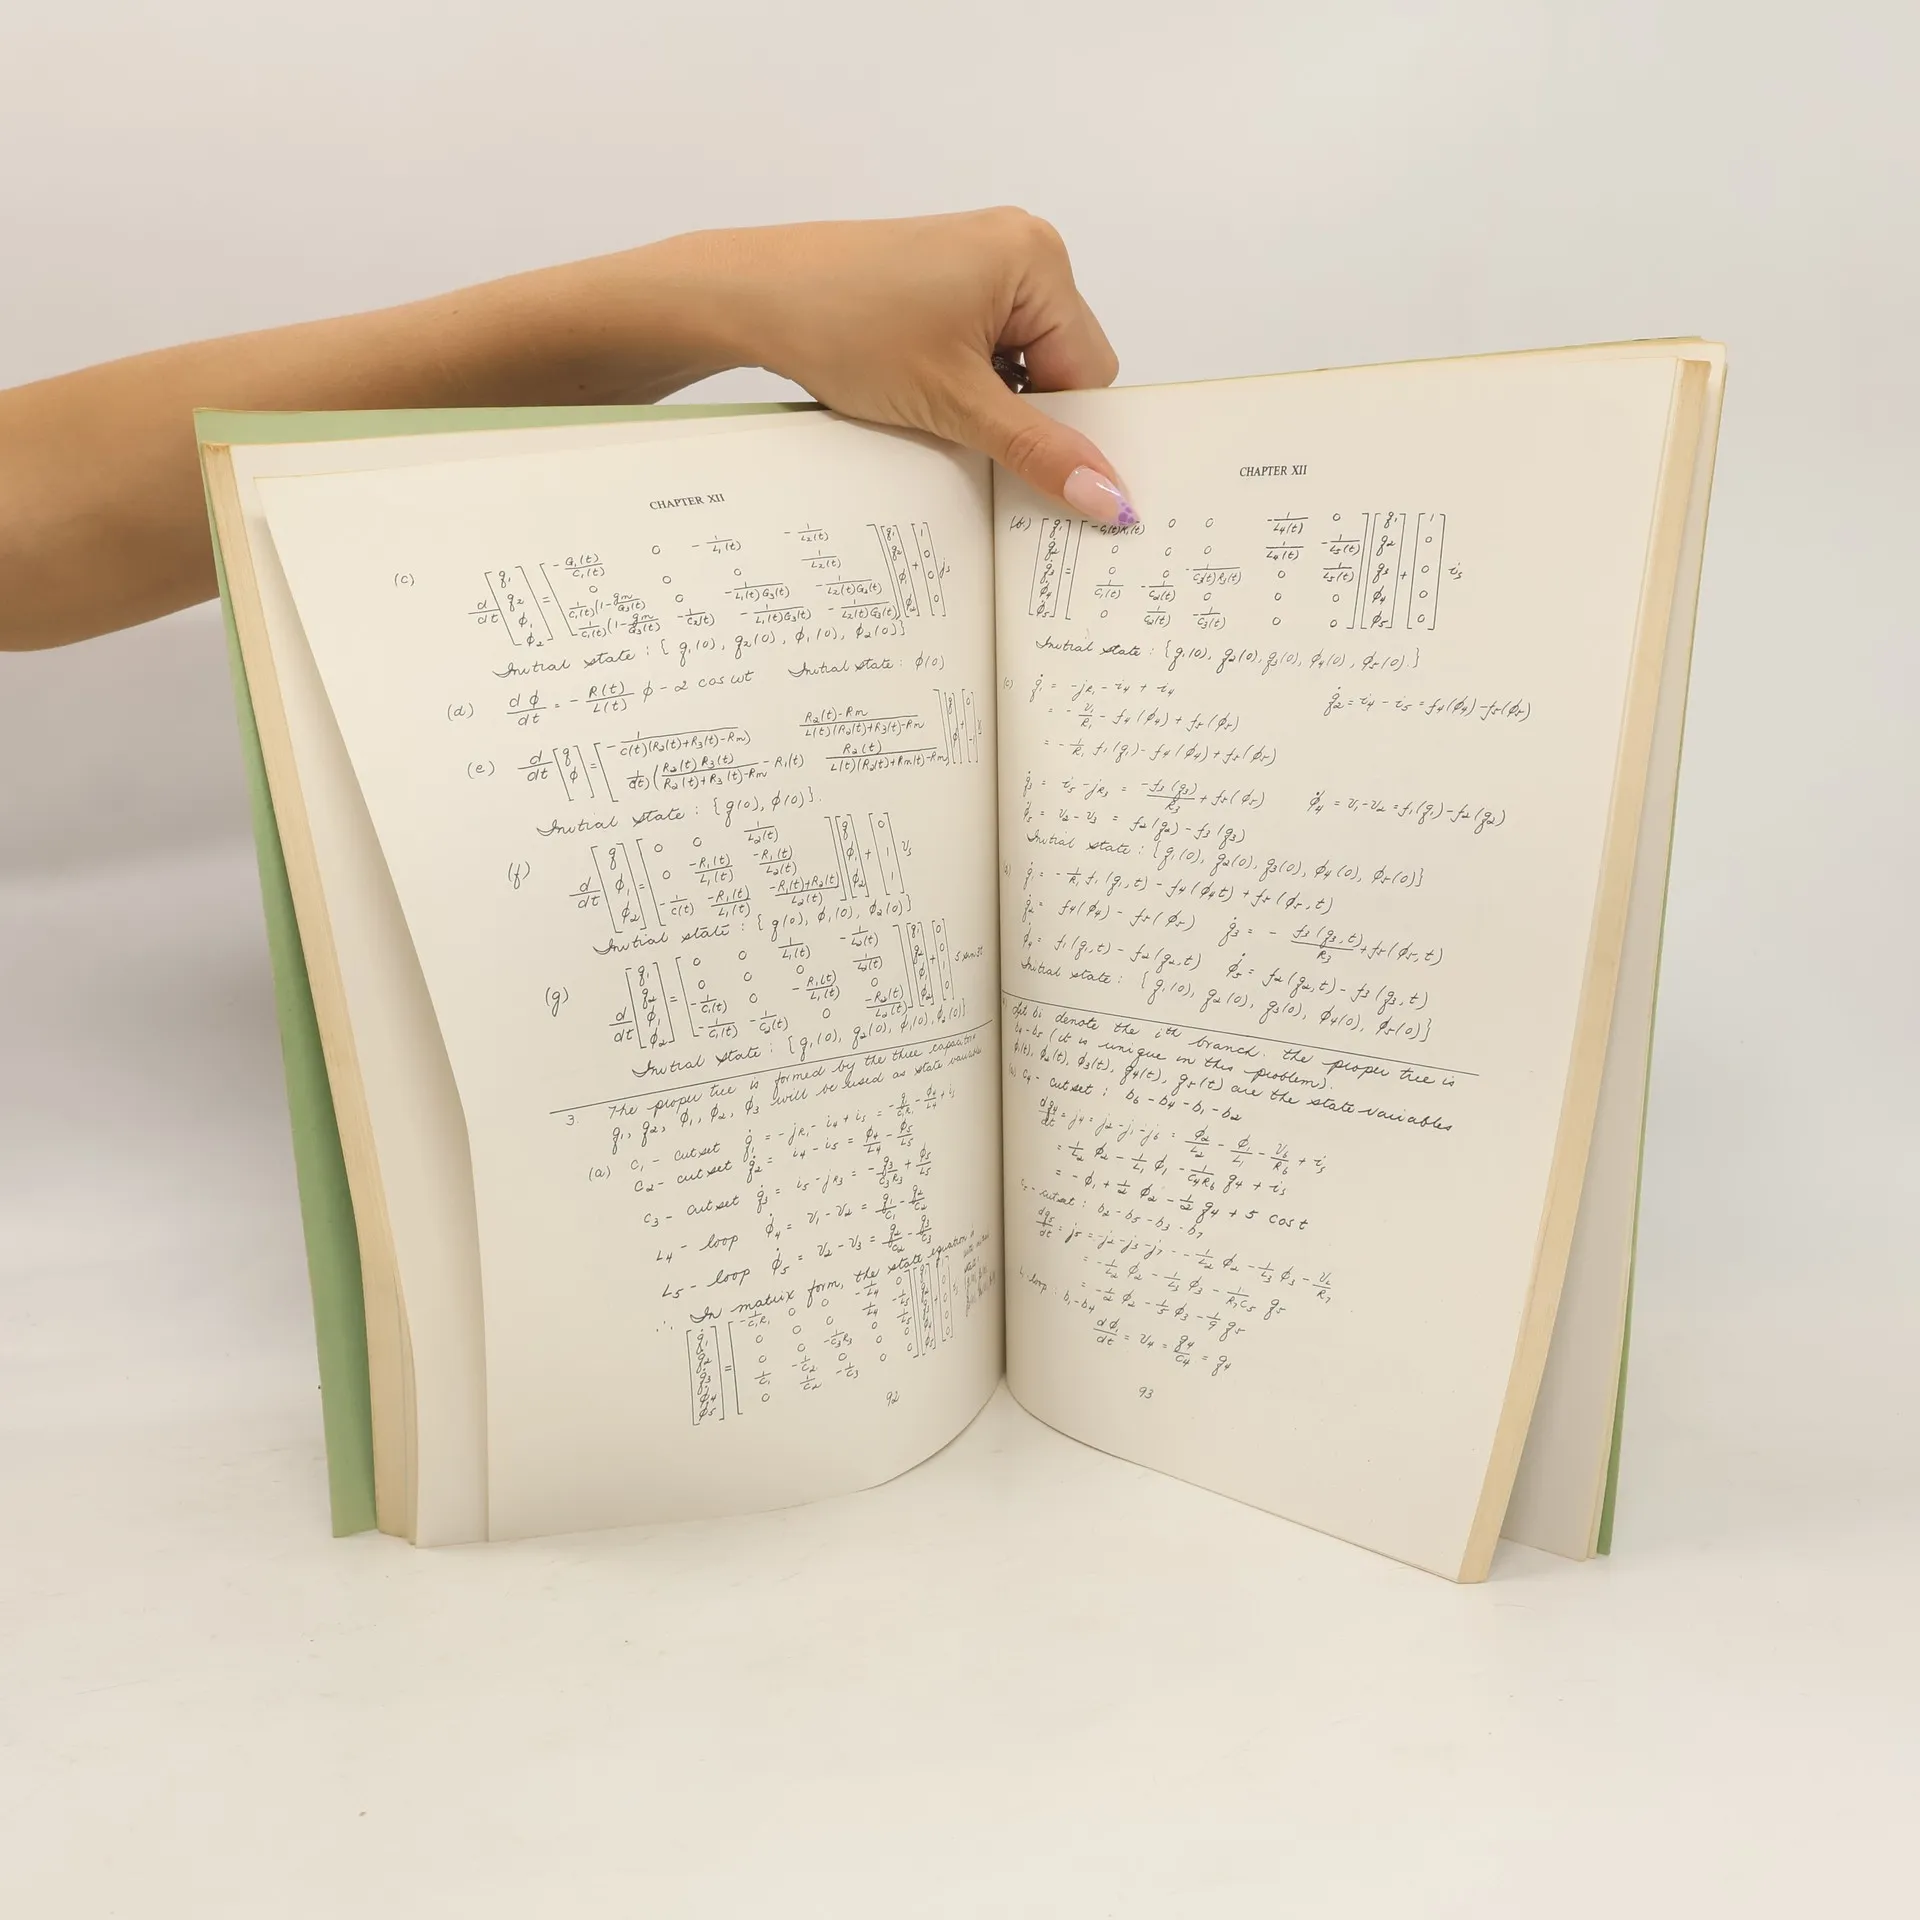 CHAPTER XII
(c) d/dt [q₁ q₂ φ₁ φ₂] = [-G₁(t)/C₁(t) 0 -1/L₁(t) -1/L₂(t)
0 0 0 1/L₂(t)
1/C₁(t)(1-gm/G₃(t)) 0 -1/L₁(t)G₃(t) -1/L₂(t)G₃(t)
1/C₁(t)(1-gm/G₃(t)) -1/C₂(t) -1/L₁(t)G₃(t) -1/L₂(t)G₃(t)] [q₁ q₂ φ₁ φ₂] + [1 0 0 0] js
Initial state : { q₁(0), q₂(0), φ₁(0), φ₂(0)}
(d) dφ/dt = -R(t)/L(t) φ - 2 cos ωt Initial state : φ(0)
(e) d/dt [q φ] = [-1/C(t)(R₂(t)+R₃(t)-Rm) R₂(t)-Rm/L(t)(R₂(t)+R₃(t)-Rm)
(R₂(t)R₃(t)/R₂(t)+R₃(t)-Rm - R₁(t) R₂(t)/L(t)(R₂(t)+Rm(t)-Rm)] [q φ] +
Initial state : { q(0), φ(0)}.
(f) d/dt [q φ₁ φ₂] = [0 0 1/L₂(t)
0 -R₁(t)/L₁(t) -R₁(t)/L₂(t)
-1/C(t) -R₁(t)/L₁(t) -R₁(t)+R₂(t)/L₂(t)] [q φ₁ φ₂] + [0 1 1] vs
Initial state : { q(0), φ₁(0), φ₂(0)}
(g) d/dt [q₁ q₂ φ₁ φ₂] = [0 0 1/L₁(t) -1/L₂(t)
0 0 0 1/L₂(t)
-1/C₁(t) 0 -R₁(t)/L₁(t) 0
-1/C₁(t) -1/C₂(t) 0 -R₂(t)/L₂(t)] [q₁ q₂ φ₁ φ₂] + [0 0 1 0] 5 sin 3t
Initial state : { q₁(0), q₂(0), φ₁(0), φ₂(0)}
3. The proper tree is formed by the three capacitor
q₁, q₂, φ₁, φ₂, φ₃ will be used as state variables
(a) C₁ - cutset q̇₁ = -jR₁ - i₄ + is = -q₁/C₁R₁ - φ₄/L₄ + is
C₂ - cutset q̇₂ = i₄ - i₅ = φ₄/L₄ - φ₅/L₅
C₃ - cutset q̇₃ = i₅ - jR₃ = -q₃/C₃R₃ + φ₅/L₅
L₄ - loop φ̇₄ = v₁ - v₂ = q₁/C₁ - q₂/C₂
L₅ - loop φ̇₅ = v₂ - v₃ = q₂/C₂ - q₃/C₃
∴ In matrix form, the state equation is
[q̇₁ q̇₂ q̇₃ φ̇₄ φ̇₅] = [-1/C₁R₁ 0 0 -1/L₄ 0
0 0 0 1/L₄ -1/L₅
0 0 -1/C₃R₃ 0 1/L₅
1/C₁ -1/C₂ 0 0 0
0 1/C₂ -1/C₃ 0 0]
92
CHAPTER XII
(b) [q̇₁ q̇₂ q̇₃ φ̇₄ φ̇₅] = [-C₁(t)R₁(t) 0 0 -1/L₄(t) 0
0 0 0 1/L₄(t) -1/L₅(t)
0 0 -1/C₃(t)R₃(t) 0 1/L₅(t)
1/C₁(t) -1/C₂(t) 0 0 0
0 1/C₂(t) -1/C₃(t) 0 0] [q₁ q₂ q₃ φ₄ φ₅] + [1 0 0 0 0] is
Initial state : { q₁(0), q₂(0), q₃(0), φ₄(0), φ₅(0).}
(c) q̇₁ = -jR₁ - i₄ + i₄ q̇₂ = i₄ - i₅ = f₄(φ₄) - f₅(φ₅)
= -v₁/R₁ - f₄(φ₄) + f₅(φ₅)
= -1/R₁ f₁(q₁) - f₄(φ₄) + f₅(φ₅)
q̇₃ = i₅ - jR₃ = -f₃(q₃)/R₃ + f₅(φ₅) φ̇₄ = v₁ - v₂ = f₁(q₁) - f₂(q₂)
φ̇₅ = v₂ - v₃ = f₂(q₂) - f₃(q₃)
Initial state : { q₁(0), q₂(0), q₃(0), φ₄(0), φ₅(0)}
q̇₁ = -1/R₁ f₁(q₁,t) - f₄(φ₄t) + f₅(φ₅,t)
q̇₂ = f₄(φ₄) - f₅(φ₅) q̇₃ = -f₃(q₃,t)/R₃ + f₅(φ₅,t)
φ̇₄ = f₁(q₁,t) - f₂(q₂,t) φ̇₅ = f₂(q₂,t) - f₃(q₃,t)
Initial state : { q₁(0), q₂(0), q₃(0), φ₄(0), φ₅(0)}
Let bi denote the ith branch. the proper tree is
b₄-b₅ (it is unique in this problem).
φ₁(t), φ₂(t), φ₃(t), q₄(t), q₅(t) are the state variables
(a) C₄ - cutset : b₆ - b₄ - b₁ - b₂
dq₄/dt = j₄ = j₂ - j₁ - j₆ = φ₂/L₂ - φ₁/L₁ - v₆/R₆ + is
= 1/L₂ φ₂ - 1/L₁ φ₁ - 1/C₄R₆ q₄ + is
= -φ₁ + 1/2 φ₂ - 1/2 q₄ + 5 cos t
C₅ - cutset : b₂ - b₅ - b₃ - b₇
dq₅/dt = j₅ = -j₂ - j₃ - j₇ = -1/L₂ φ₂ - 1/L₃ φ₃ - v₂/R₇
= -1/L₂ φ₂ - 1/L₃ φ₃ - 1/R₇C₅ q₅
= -1/2 φ₂ - 1/5 φ₃ - 1/9 q₅
L₁ loop : b₁ - b₄
dφ₁/dt = v₄ = q₄/C₄ = q₄
93